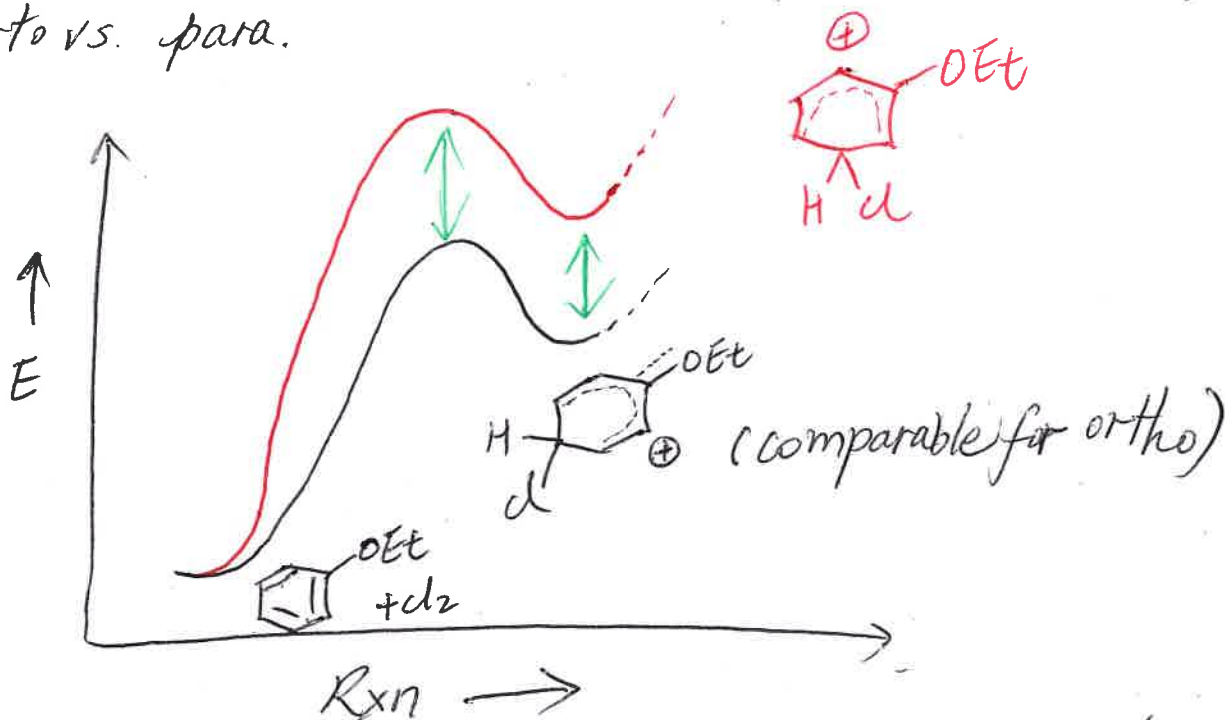 to vs. para.
⊕
OEt
H Cl
E
OEt
H
⊕ (comparable for ortho)
Cl
OEt
+Cl2
Rxn